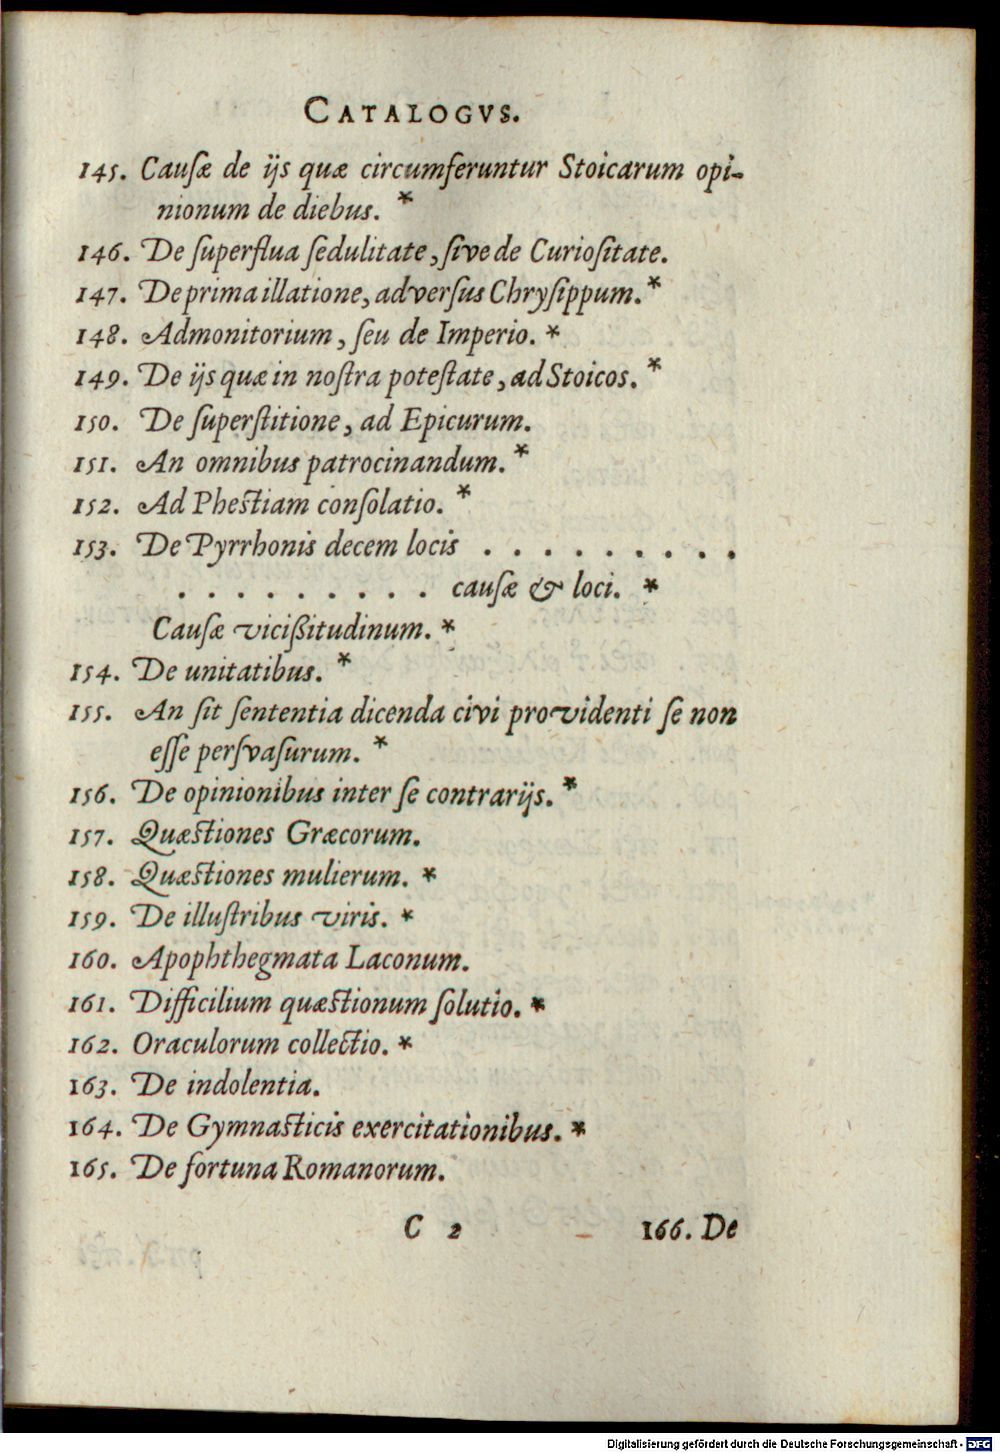 CATALOGVS.
145. Cauſæ de ijs quæ circumferuntur Stoicarum opi-
nionum de diebus. *
146. De ſuperflua ſedulitate, ſive de Curioſitate.
147. De prima illatione, adverſus Chryſippum. *
148. Admonitorium, ſeu de Imperio. *
149. De ijs quæ in noſtra poteſtate, ad Stoicos. *
150. De ſuperſtitione, ad Epicurum.
151. An omnibus patrocinandum. *
152. Ad Pheſtiam conſolatio. *
153. De Pyrrhonis decem locis . . . . . . . . .
. . . . . . . . . cauſæ & loci. *
Cauſæ vicißitudinum. *
154. De unitatibus. *
155. An ſit ſententia dicenda civi providenti ſe non
eſſe perſvaſurum. *
156. De opinionibus inter ſe contrarijs. *
157. Quæſtiones Græcorum.
158. Quæſtiones mulierum. *
159. De illuſtribus viris. *
160. Apophthegmata Laconum.
161. Difficilium quæſtionum ſolutio. *
162. Oraculorum collectio. *
163. De indolentia.
164. De Gymnaſticis exercitationibus. *
165. De fortuna Romanorum.
C 2 166. De
Digitalisierung gefördert durch die Deutsche Forschungsgemeinschaft - DFG